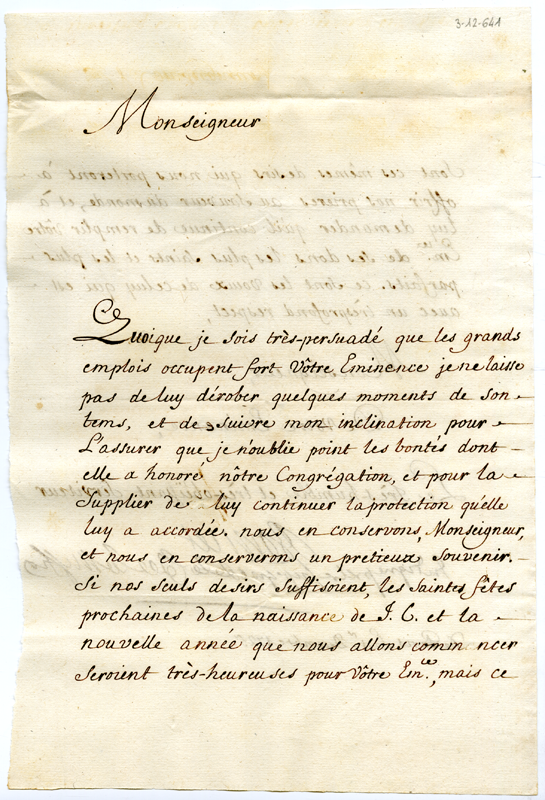 3-12-641
Monseigneur
Quoique je sois très-persuadé que les grands
emplois occupent fort Vôtre Eminence je ne laisse
pas de luy dérober quelques moments de son
tems, et de suivre mon inclination pour
L'assurer que je n'oublie point les bontés dont
elle a honoré nôtre Congrégation, et pour la
Supplier de luy continuer la protection qu'elle
luy a accordée. nous en conservons, Monseigneur,
et nous en conserverons un pretieux souvenir.
Si nos seuls desirs suffisoient, les saintes fêtes
prochaines de la naissance de J. C. et la
nouvelle année que nous allons comm ncer
seroient très-heureuses pour Vôtre Em.ce, mais ce